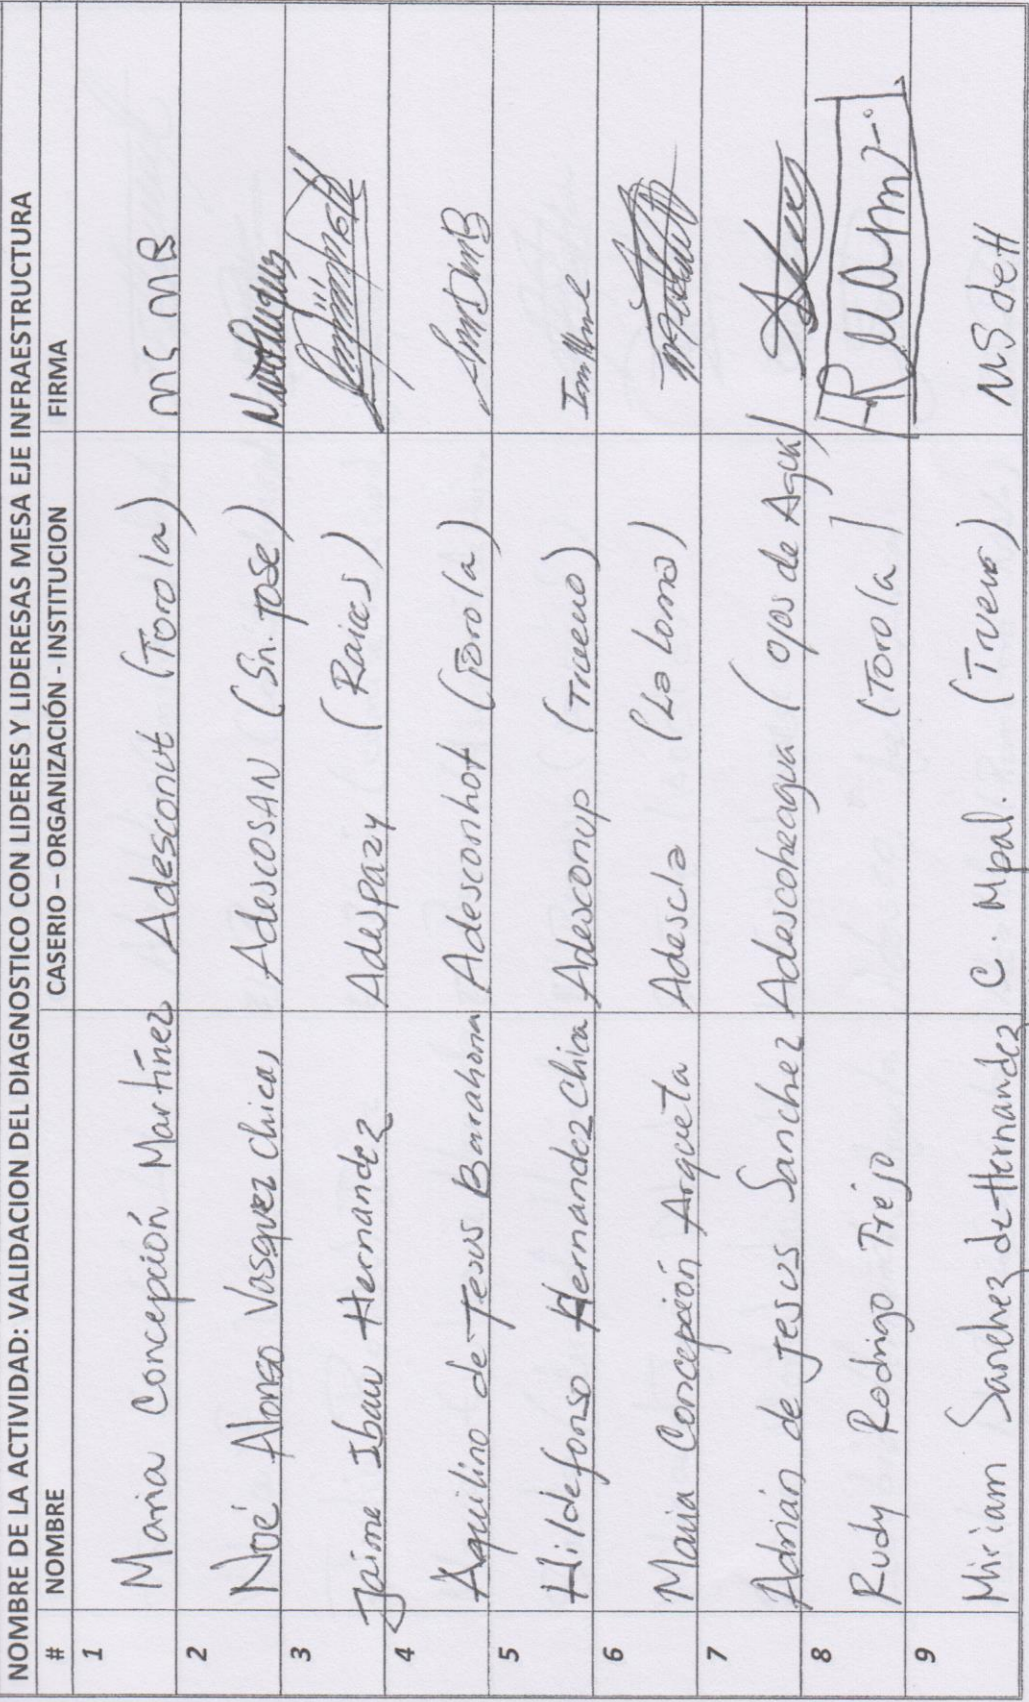 NOMBRE DE LA ACTIVIDAD: VALIDACION DEL DIAGNOSTICO CON LIDERES Y LIDERESAS MESA EJE INFRAESTRUCTURA
# NOMBRE CASERIO – ORGANIZACIÓN - INSTITUCION FIRMA
1 Maria Concepción Martínez Adesconut (Torola) MC MB
2 Noé Alonso Vasquez Chicas Adescosan (Sn. José)
3 Jaime Ibau Hernandez Adespazy (Raices)
4 Aquilino de Jesus Barahona Adesconhot (Torola)
5 Hildefonso Hernandez Chica Adesconup (Trueno)
6 Maria Concepción Argueta Adescla (La Loma)
7 Adrián de Jesus Sanchez Adescoheagua (Ojos de Agua)
8 Rudy Rodrigo Trejo (Torola)
9 Miriam Sanchez de Hernandez C. Mpal. (Trueno) MS deH